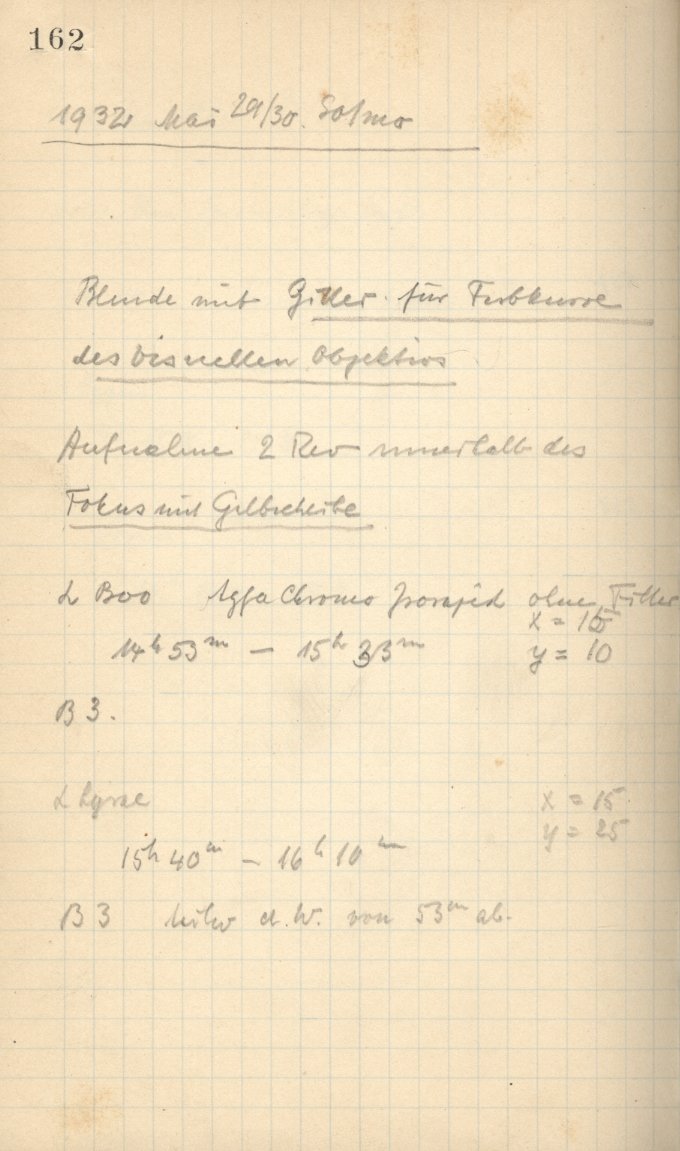 162
1932 Mai 29/30. Sotmo
Blende mit Gitter für Farbkurve
des visuellen Objektivs
Aufnahme 2 Rev innerhalb des
Fokus mit Gelbscheibe
α Boo Agfa Chromo Isorapid ohne Filter
x = 15
14h 53m — 15h 33m y = 10
B 3.
α Lyrae x = 15
y = 25
15h 40m — 16h 10m
B 3 d. W. von 53m ab.